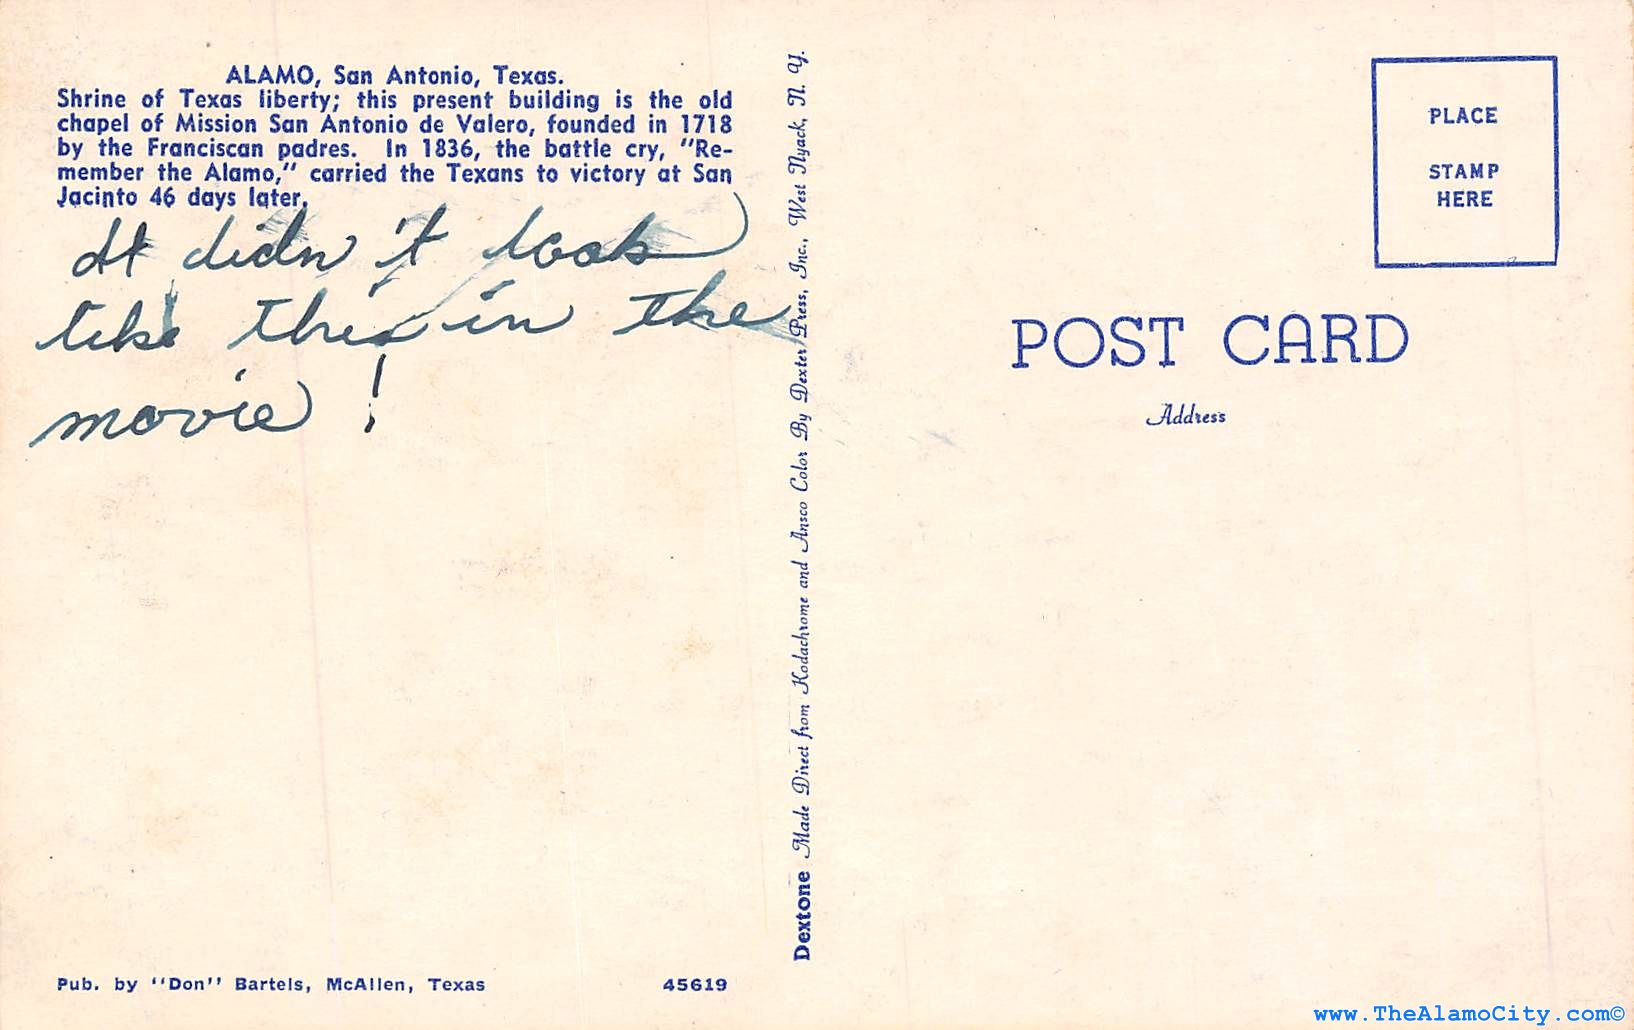 ALAMO, San Antonio, Texas.
Shrine of Texas liberty; this present building is the old
chapel of Mission San Antonio de Valero, founded in 1718
by the Franciscan padres. In 1836, the battle cry, "Re-
member the Alamo," carried the Texans to victory at San
Jacinto 46 days later.
It didn't look
like this in the
movie!
Pub. by "Don" Bartels, McAllen, Texas
45619
Dextone Made Direct from Kodachrome and Ansco Color By Dexter Press, Inc., West Nyack, N. Y.
PLACE
STAMP
HERE
POST CARD
Address
www.TheAlamoCity.com©